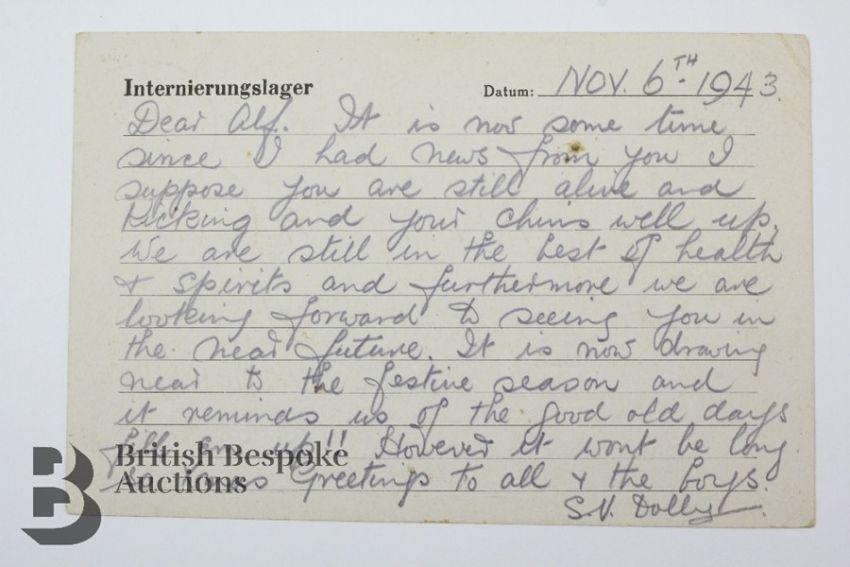 Internierungslager Datum: NOV. 6TH 1943.
Dear Alf. It is now some time
since I had news from you I
suppose you are still alive and
kicking and your chins well up.
We are still in the best of health
& spirits and furthermore we are
looking forward to seeing you in
the near future. It is now drawing
near to the festive season and
it reminds us of the good old days
fill em up!! However it wont be long
Greetings to all & the boys.
S.V. Dolly
British Bespoke
Auctions